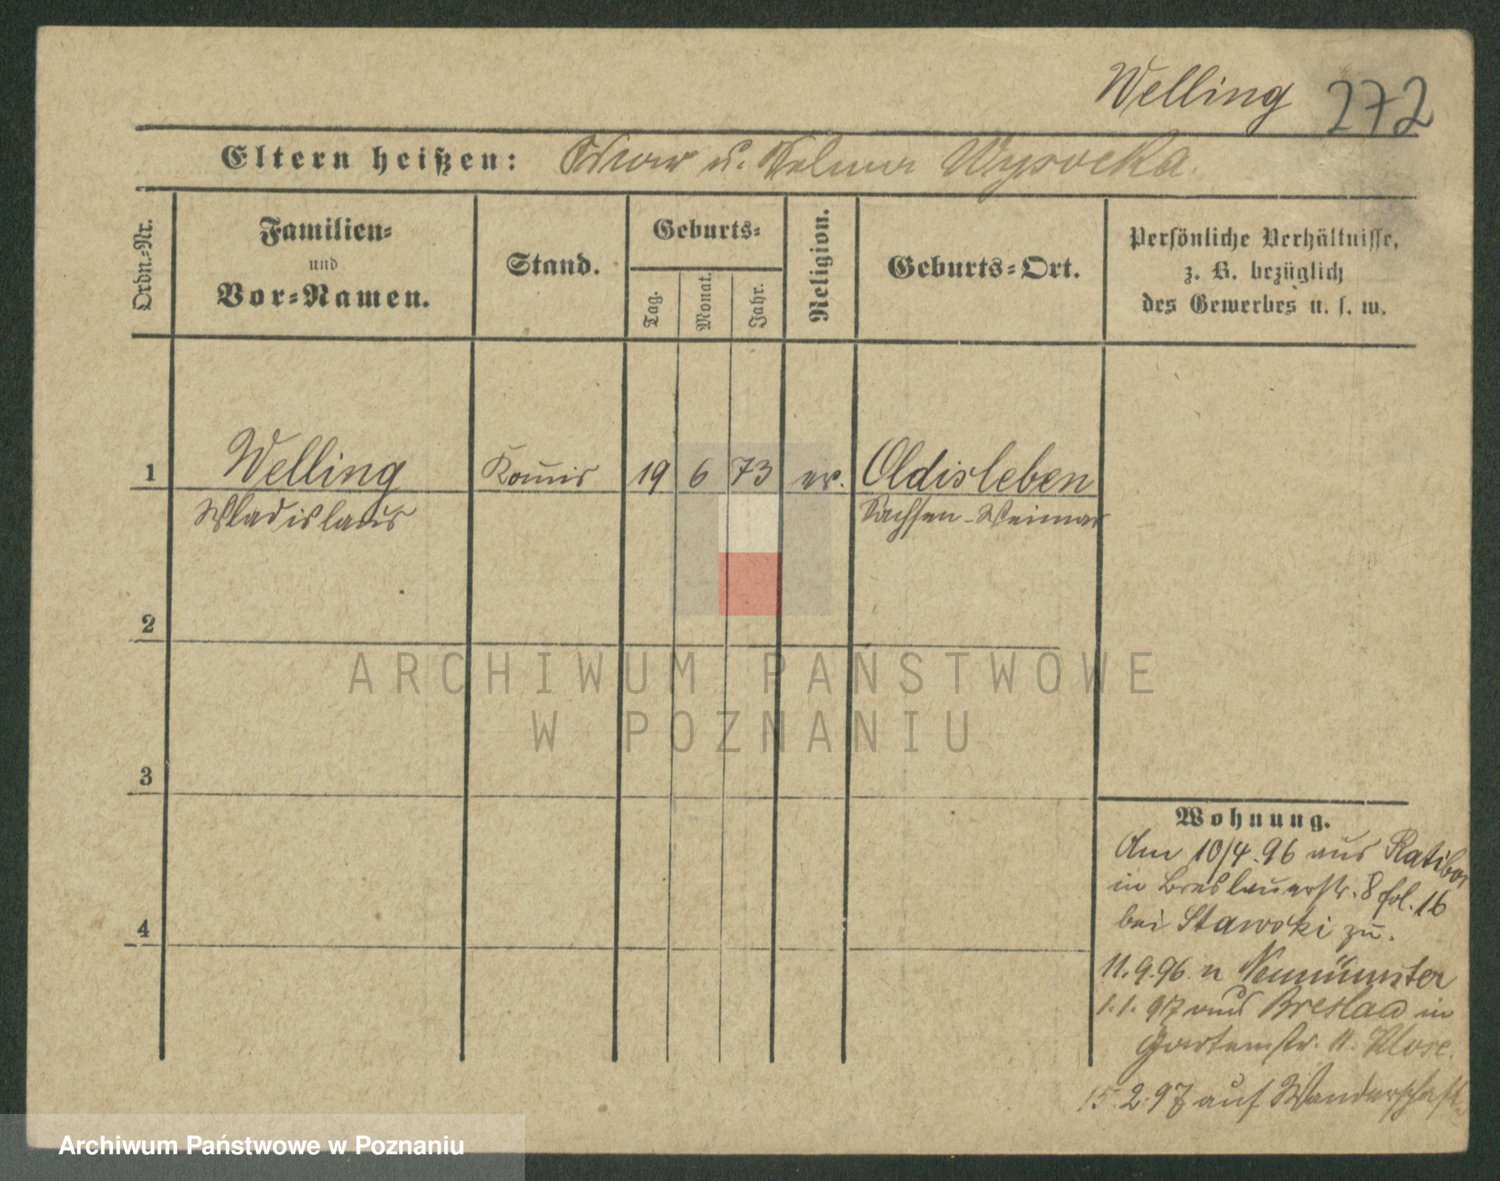 Welling 272
Eltern heißen: u. Wysocka.
Ordn.-Nr.
Familien-
und
Vor-Namen.
Stand.
Geburts-
Tag.
Monat.
Jahr.
Religion.
Geburts-Ort.
Persönliche Verhältnisse,
z. B. bezüglich
des Gewerbes u. s. w.
1 Welling Kom̅is 19 6 73 ev. Oldisleben
Wladislaus Sachsen-Weimar
2
3
4
Wohnung.
Am 10/4.96 aus Ratibor
in Breslauerstr. 8 fol. 16
bei Stawski zu.
11.9.96 n Neumünster
1.1.97 aus Breslau in
Gartenstr. 11. Klose.
15.2.97 auf Wanderschaft
ARCHIWUM PAŃSTWOWE
W POZNANIU
Archiwum Państwowe w Poznaniu